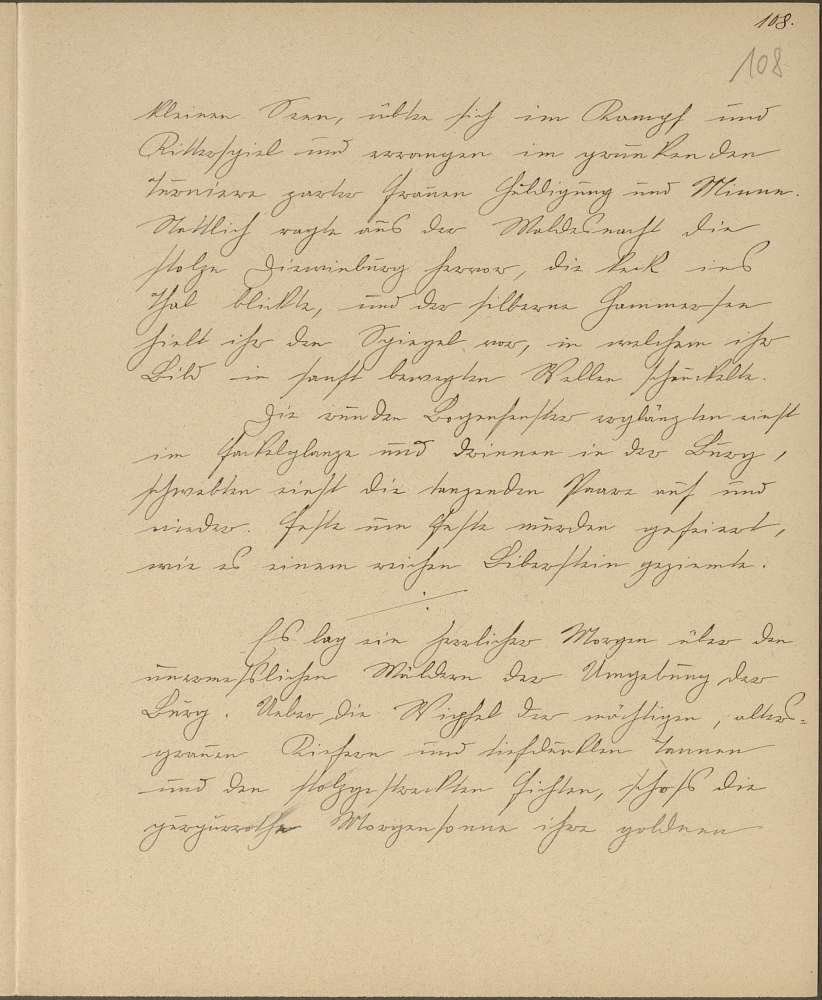 108.
108
kleinen Seen, übten sich im Kampf und
Ritterspiel und errangen im prunkenden
Turniere zarter Frauen Huldigung und Minne.
Stattlich ragte aus der Waldesnacht die
stolze hervor, die keck ins
Thal blickte, und der silberne Hammersee
hielt ihr den Spiegel vor, in welchem ihr
Bild in sanft bewegten Wellen schaukelte.
Die runden Bogenfenster erglänzten einst
im Fackelglanze und drinnen in der Burg,
schwebten einst die tanzenden Paare auf und
nieder. Feste um Feste wurden gefeiert,
wie es einem reichen Biberstein geziemte.
Es lag ein herrlicher Morgen über den
unermesslichen Wäldern der Umgebung der
Burg. Ueber die Wipfel der mächtigen, alters-
grauen Kiefern und tiefdunklen Tannen
und den stolzgestreckten Fichten, schoss die
purpurrothe Morgensonne ihre goldnen